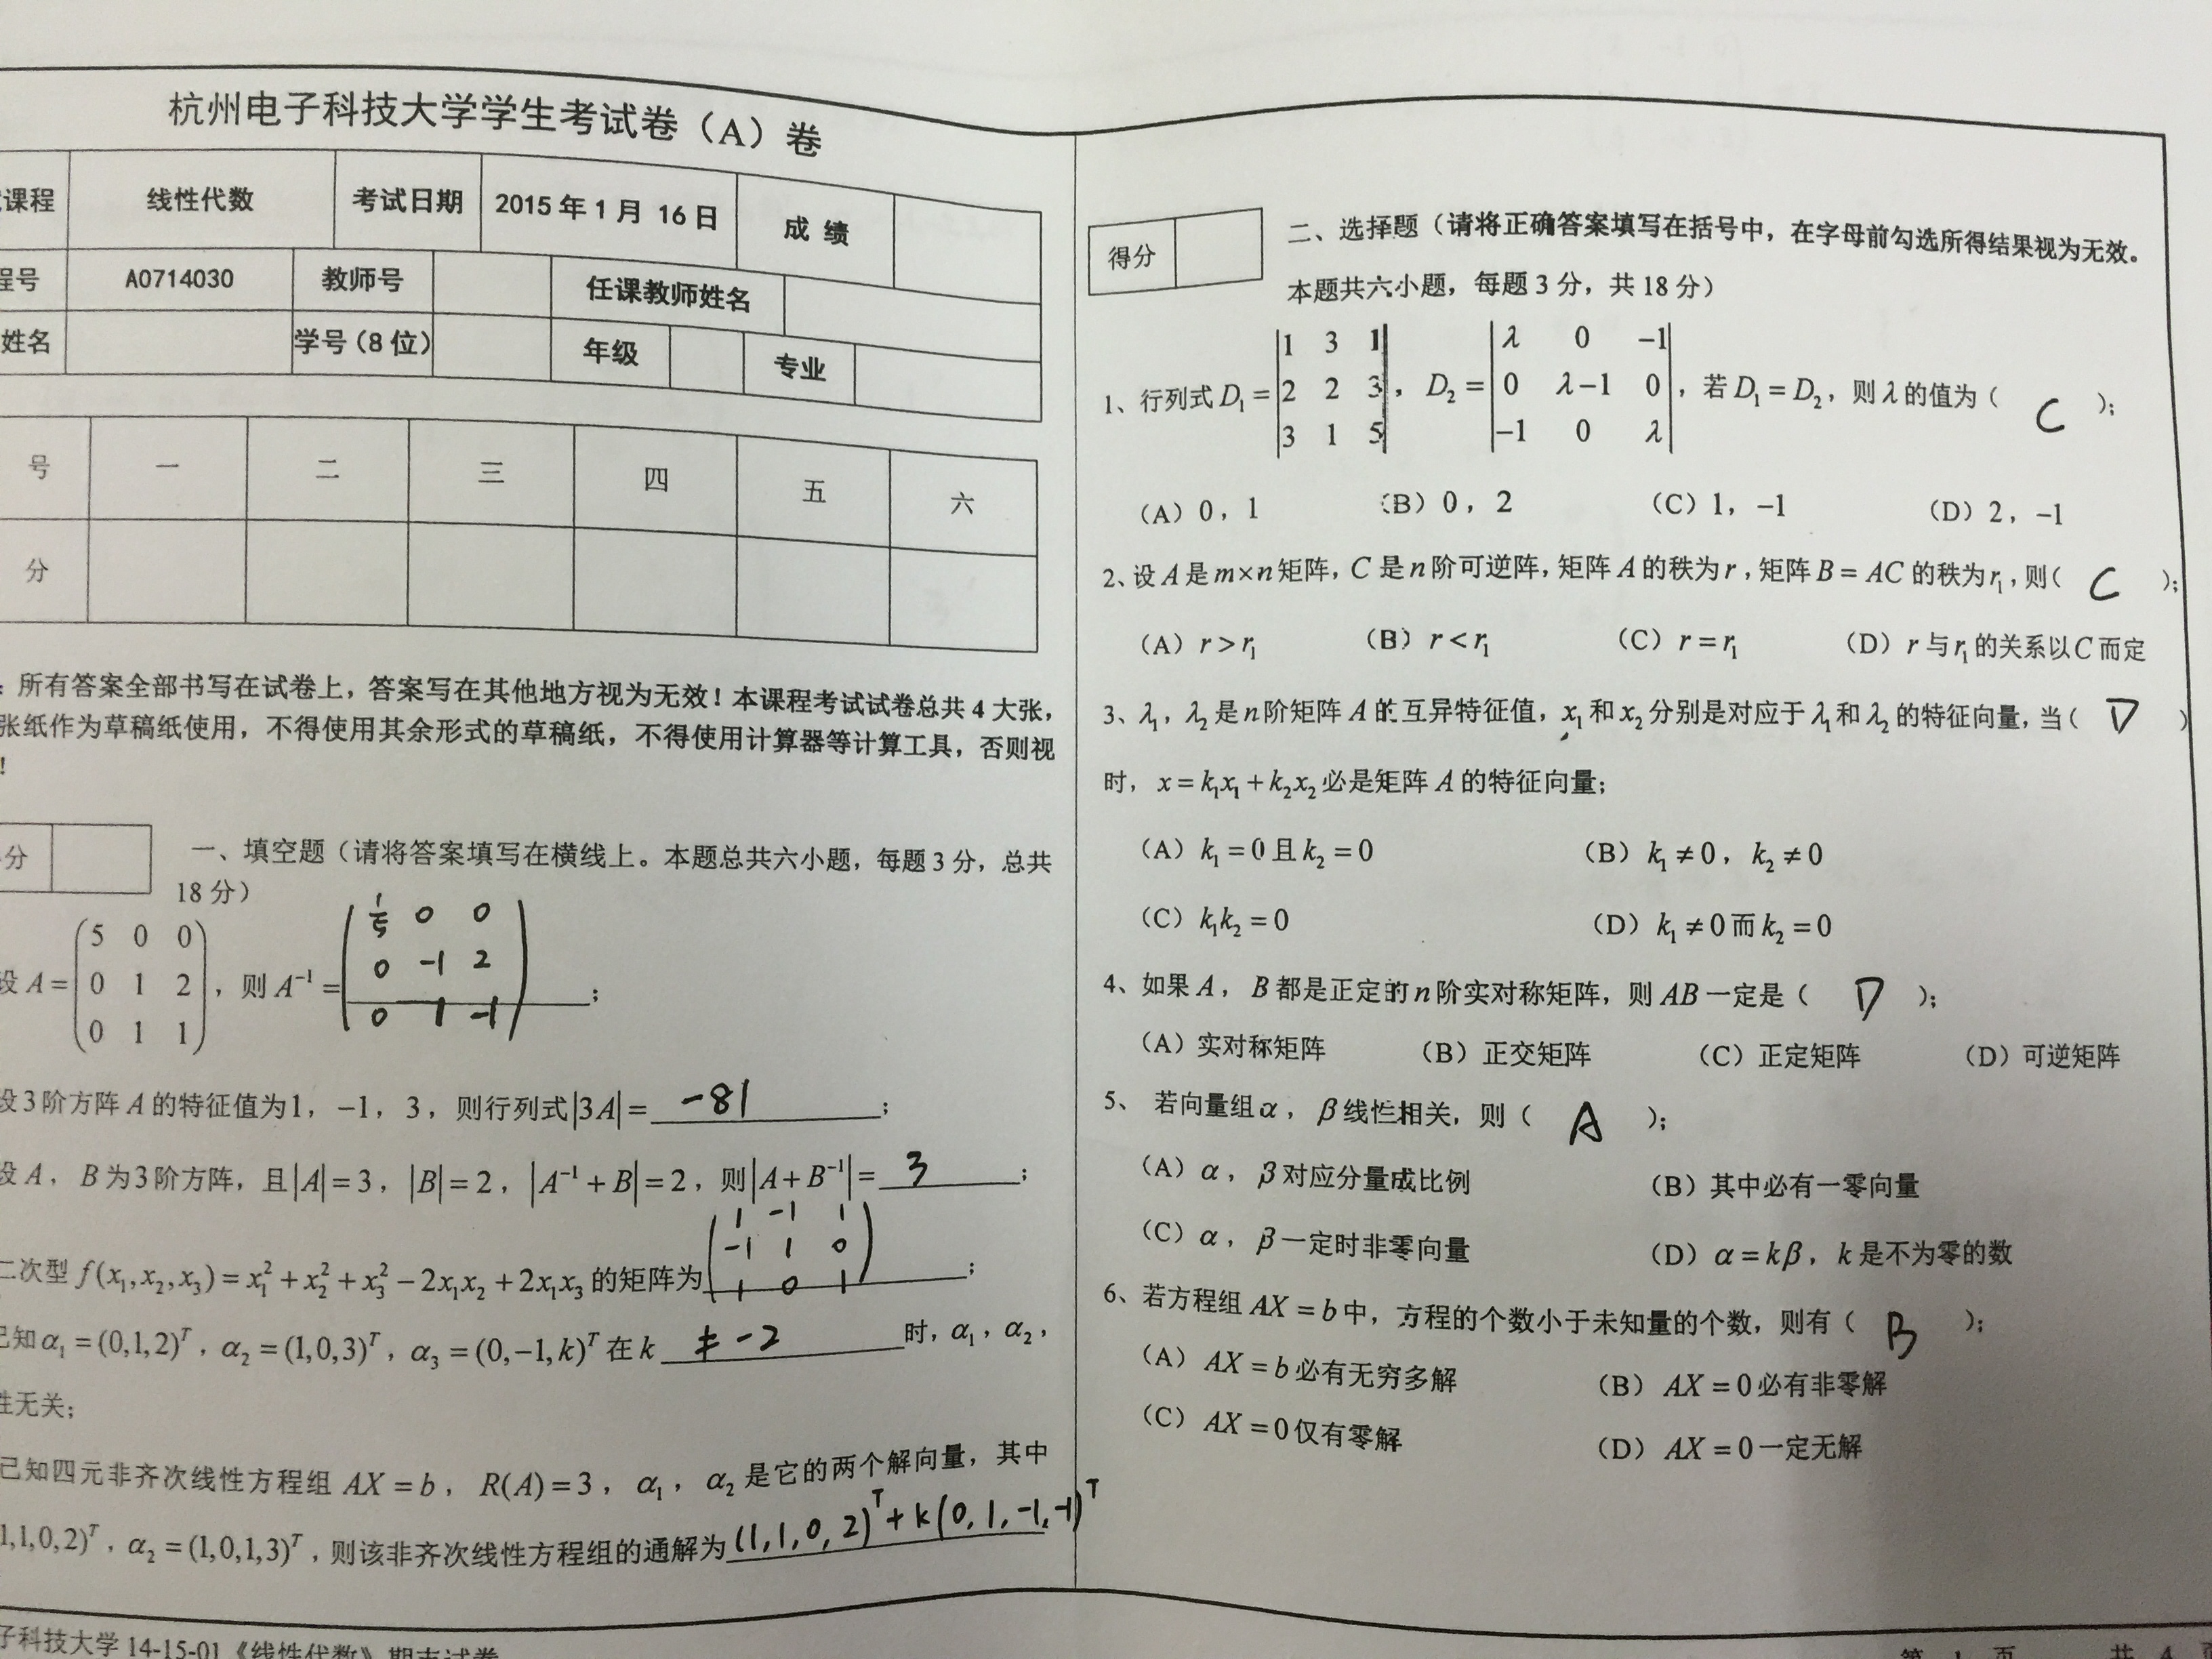 杭州电子科技大学学生考试卷（A）卷
课程 线性代数 考试日期 2015年1月16日 成绩
程号 A0714030 教师号 任课教师姓名
姓名 学号(8位) 年级 专业
号 一 二 三 四 五 六
分
：所有答案全部书写在试卷上，答案写在其他地方视为无效！本课程考试试卷总共4大张，
张纸作为草稿纸使用，不得使用其余形式的草稿纸，不得使用计算器等计算工具，否则视
！
分
一、填空题（请将答案填写在横线上。本题总共六小题，每题3分，总共
18分）
设 A = (5 0 0; 0 1 2; 0 1 1)，则 A⁻¹ = (1/5 0 0; 0 -1 2; 0 1 -1)；
设3阶方阵A的特征值为1，−1，3，则行列式|3A| = -81；
设A，B为3阶方阵，且|A|=3，|B|=2，|A⁻¹+B|=2，则|A+B⁻¹| = 3；
二次型 f(x₁,x₂,x₃) = x₁²+x₂²+x₃²−2x₁x₂+2x₁x₃ 的矩阵为 (1 -1 1; -1 1 0; 1 0 1)；
已知α₁=(0,1,2)ᵀ，α₂=(1,0,3)ᵀ，α₃=(0,−1,k)ᵀ在k ≠ -2 时，α₁，α₂，
性无关；
已知四元非齐次线性方程组 AX=b，R(A)=3，α₁，α₂是它的两个解向量，其中
1,1,0,2)ᵀ，α₂=(1,0,1,3)ᵀ，则该非齐次线性方程组的通解为 (1,1,0,2)ᵀ+k(0,1,-1,-1)ᵀ
子科技大学14-15-01《线性代数》期末试卷
得分
二、选择题（请将正确答案填写在括号中，在字母前勾选所得结果视为无效。
本题共六小题，每题3分，共18分）
1、行列式 D₁ = |1 3 1; 2 2 3; 3 1 5|，D₂ = |λ 0 −1; 0 λ−1 0; −1 0 λ|，若D₁=D₂，则λ的值为（ C ）；
（A）0，1 （B）0，2 （C）1，−1 （D）2，−1
2、设A是m×n矩阵，C是n阶可逆阵，矩阵A的秩为r，矩阵B=AC的秩为r₁，则（ C ）；
（A）r>r₁ （B）r<r₁ （C）r=r₁ （D）r与r₁的关系以C而定
3、λ₁，λ₂是n阶矩阵A的互异特征值，x₁和x₂分别是对应于λ₁和λ₂的特征向量，当（ D ）
时，x=k₁x₁+k₂x₂必是矩阵A的特征向量；
（A）k₁=0且k₂=0 （B）k₁≠0，k₂≠0
（C）k₁k₂=0 （D）k₁≠0而k₂=0
4、如果A，B都是正定的n阶实对称矩阵，则AB一定是（ D ）；
（A）实对称矩阵 （B）正交矩阵 （C）正定矩阵 （D）可逆矩阵
5、若向量组α，β线性相关，则（ A ）；
（A）α，β对应分量成比例 （B）其中必有一零向量
（C）α，β一定时非零向量 （D）α=kβ，k是不为零的数
6、若方程组AX=b中，方程的个数小于未知量的个数，则有（ B ）；
（A）AX=b必有无穷多解 （B）AX=0必有非零解
（C）AX=0仅有零解 （D）AX=0一定无解
第 1 页 共 4